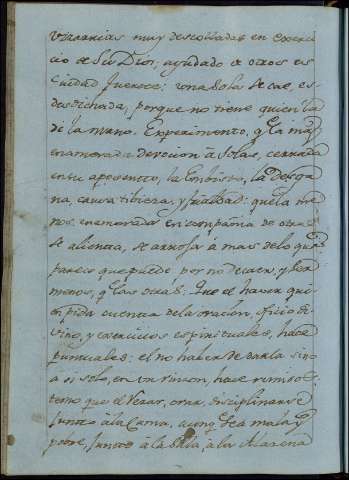 vizarrias muy descolladas en exerci
cio de Su Dios, ayudado de otros es
Ciudad fuerte: una Sola se cae, es
desdichada, porque no tiene quien la
dè la mano. Experimento, q la mas
enamorada devocion à Solas, cerrada
en su aposento, la la Desga
na, causa tibieza, y frialdad: que la me
nos enamorada en compañia de otras
se alienta, se arroja à mas delo que
parece que puede por no decaer, y ser
menos, q las otras: Que el haver qui
en pida cuenta dela oracion, oficio di
vino, y exercicios espirituales, hace
puntuales: el no haber de darla sino
à si solo, en un rincon, hace remisos:
temo que el Rezar, orar, disciplinarse
junto à la Cama, aunq sea mala, y
pobre, junto à la à la Alazena